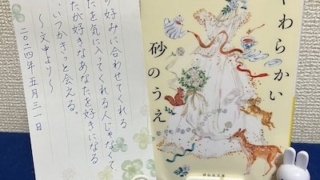 好みに合わせてくれる
を気に入ってくれる人じゃなくて
が好きなあなたを好きになる
いつかきっと会える。
〜文中より〜
二〇二四年五月三一日
やわらかい
砂のうえ